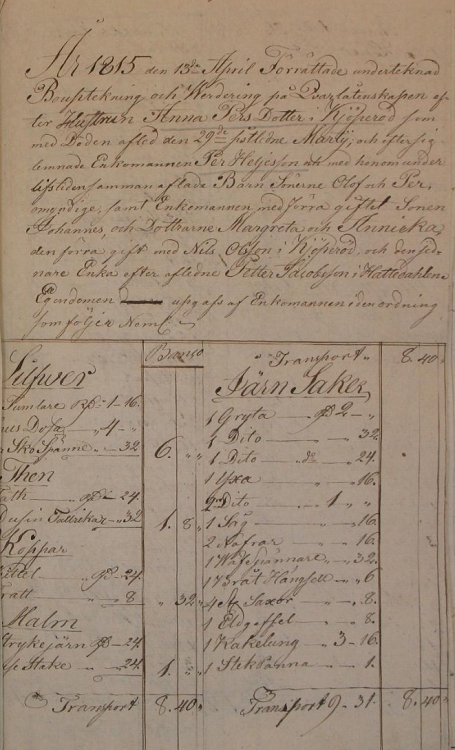 År 1815 den 13de April Förrättade undertecknad
Bouptekning och Werdering på Qvarlåtenskapen ef-
ter Hustrun Anna Pers Dotter i Kjöperöd som
med Döden afled den 29de sistledne Martij, och efter sig
lemnade Enkomannen Per Hejesson med honom under
lifstiden samman aflade Barn Sönerne Olof och Per,
omyndige, samt Enkomannen med förra giftet Sonen
Johannes, och Döttrarne Margreta och Annicka,
den förra gift med Nils Olsson i Kjöperöd, och den sed-
nare Enka efter afledne Petter Jacobsson i Hattedahlen
Egendomen upgafs af Enkomannen i den ordning
som följer Neml.
Banco
Silfver
Tumlare Rd 1-16.
Dosa 4
Sko Spänne 32 6.
Then
fath 24.
Dusin Tallrikar 32 1. 8
Koppar
Kittel 24.
8 32
Malm
Strykejärn 24
Stake 24 1.
Transport 8. 40.
Transport 8. 40.
Järn Saker
1 Gryta 2
1 Dito 32
1 Dito 24.
1 Yxa 16.
2 Dito 1
1 Såg 16.
2 Nafrar 16.
1 Wäfspännare 32.
1 Brät Hängsell 6
4 St Saxor 8.
1 Eldgaffel 8.
1 Kakelung 3-16.
1 Stekpanna 1.
Transport 9-31. 8. 40